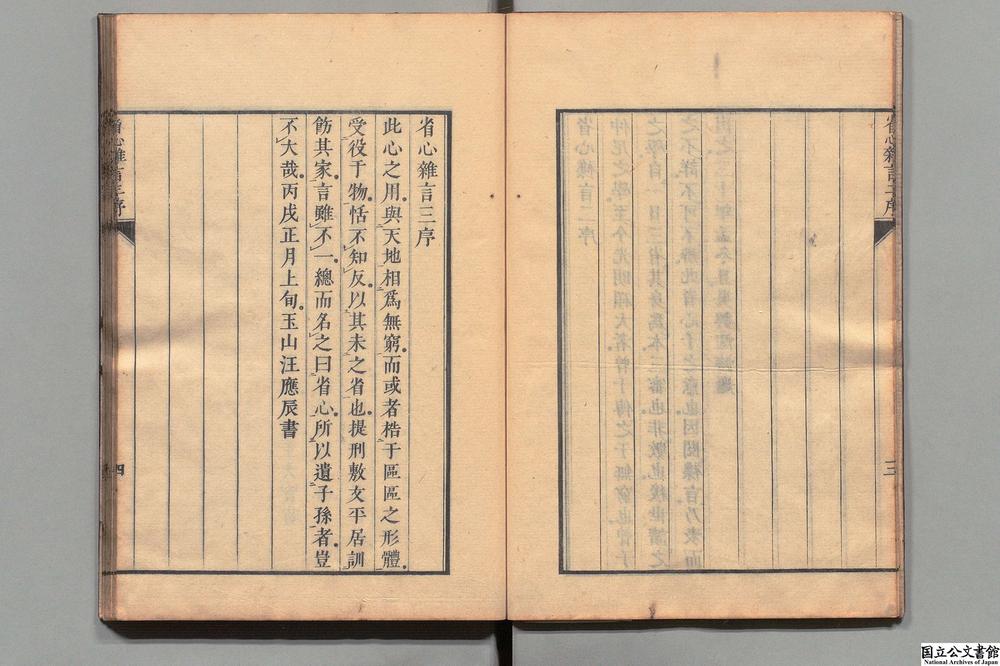 省心雜言三序
三
省心雜言三序
此心之用與天地相爲無窮而或者梏于區區之形體
受役于物恬不知反以其未之省也提刑敷文平居訓
飭其家言雖不一總而名之曰省心所以遺子孫者豈
不大哉丙戌正月上旬玉山汪應辰書
省心雜言三序
四
国立公文書館
National Archives of Japan